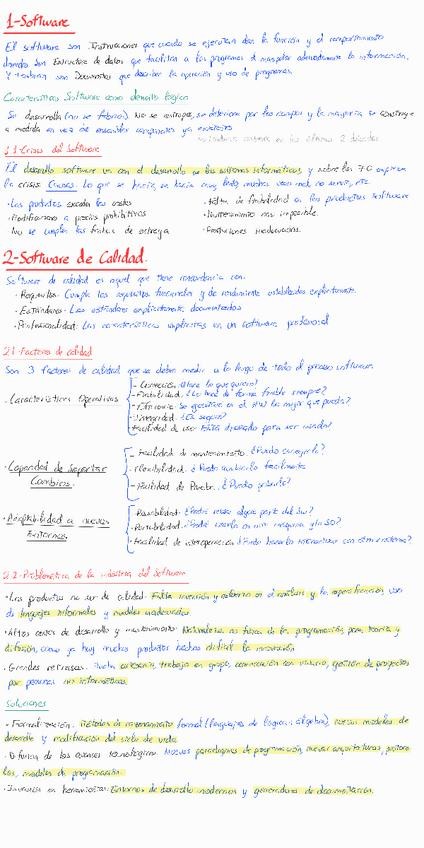 1-Software
El software son Instrucciones que cuando se ejecutan dan la función y el comportamiento
son Estructura de datos que facilitan a los programas el manejar adecuadamente la información,
Y también son Documentos que describen la operación y uso de programas.
Características Software como elemento lógico
Se desarrolla (no se fabrica), No se estropea, se deteriora por los cambios y la mayoría se construye
a medida en vez de ensamblar componentes ya existentes
1.1 Crisis del Software
El desarrollo software va con el desarrollo de los sistemas informáticos, y sobre los 70 empieza
la crisis. Causas: Lo que se hacía, se hacía muy
· Los productos exceden los costes
· Modificaciones a precios prohibitivos
No se cumplen las fechas de entrega
· Falta de fiabilidad de los productos software
· Mantenimiento casi imposible.
2-Software de Calidad.
Software de calidad es aquel que tiene concordancia con:
· Requisitos: Cumple los requisitos funcionales y de rendimiento establecidos explícitamente.
· Estándares: Los estándares explícitamente documentados
· Profesionalidad: Las características implícitas en un software profesional
2.1-Factores de calidad
Son 3 factores de calidad que se deben medir a lo largo de todo el proceso software.
· Características Operativas
- Corrección. ¿Hace lo que quiero?
- Fiabilidad. ¿Lo hace de forma fiable siempre?
- Eficiencia. Se ejecutará en el HW lo mejor que pueda?
- Integridad. ¿Es seguro?
- Facilidad de uso. Está diseñado para ser usado?
· Capacidad de Soportar
Cambios.
- Facilidad de mantenimiento. ¿Puedo corregirlo?
- Flexibilidad. ¿Puedo cambiarlo fácilmente
- Facilidad de Prueba. ¿Puedo probarlo?
· Adaptabilidad a nuevos
Entornos
- Reusabilidad. ¿Podré reusar alguna parte del Sw?
- Portabilidad. ¿Podré usarlo en otra máquina y/o SO?
- Facilidad de interoperación ¿Puedo hacerlo interactuar con otro sistema?
2.2-Problemática de la industria del software
· Los productos no son de calidad. Falta inversión y esfuerzo en el análisis y la especificación, uso
de lenguajes informales y modelos inadecuados.
· Altos costes de desarrollo y mantenimiento. Naturaleza no física de la programación,
difusión, como ya hay muchos productos hechos dificulta la innovación
· Grandes retrasos. trabajo en grupo, comunicación con usuario, gestión de proyectos
por personas no informáticas.
Soluciones
· Formalización. Métodos de razonamiento formal (lenguajes de lógica, álgebra), nuevos modelos de
desarrollo y modificación del ciclo de vida.
· Difusión de los avances tecnológicos. Nuevos paradigmas de programación, nuevas arquitecturas,
los, modelos de programación.
· Inversión en herramientas: Entornos de desarrollo modernos y generadores de documentación.